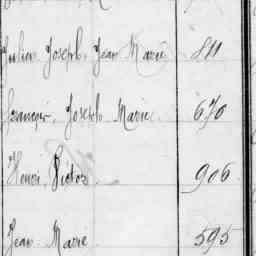 Julien, Joseph, Jean Marie 811
François, Joseph Marie. 670
Henri, Victor 906.
Jean Marie 595